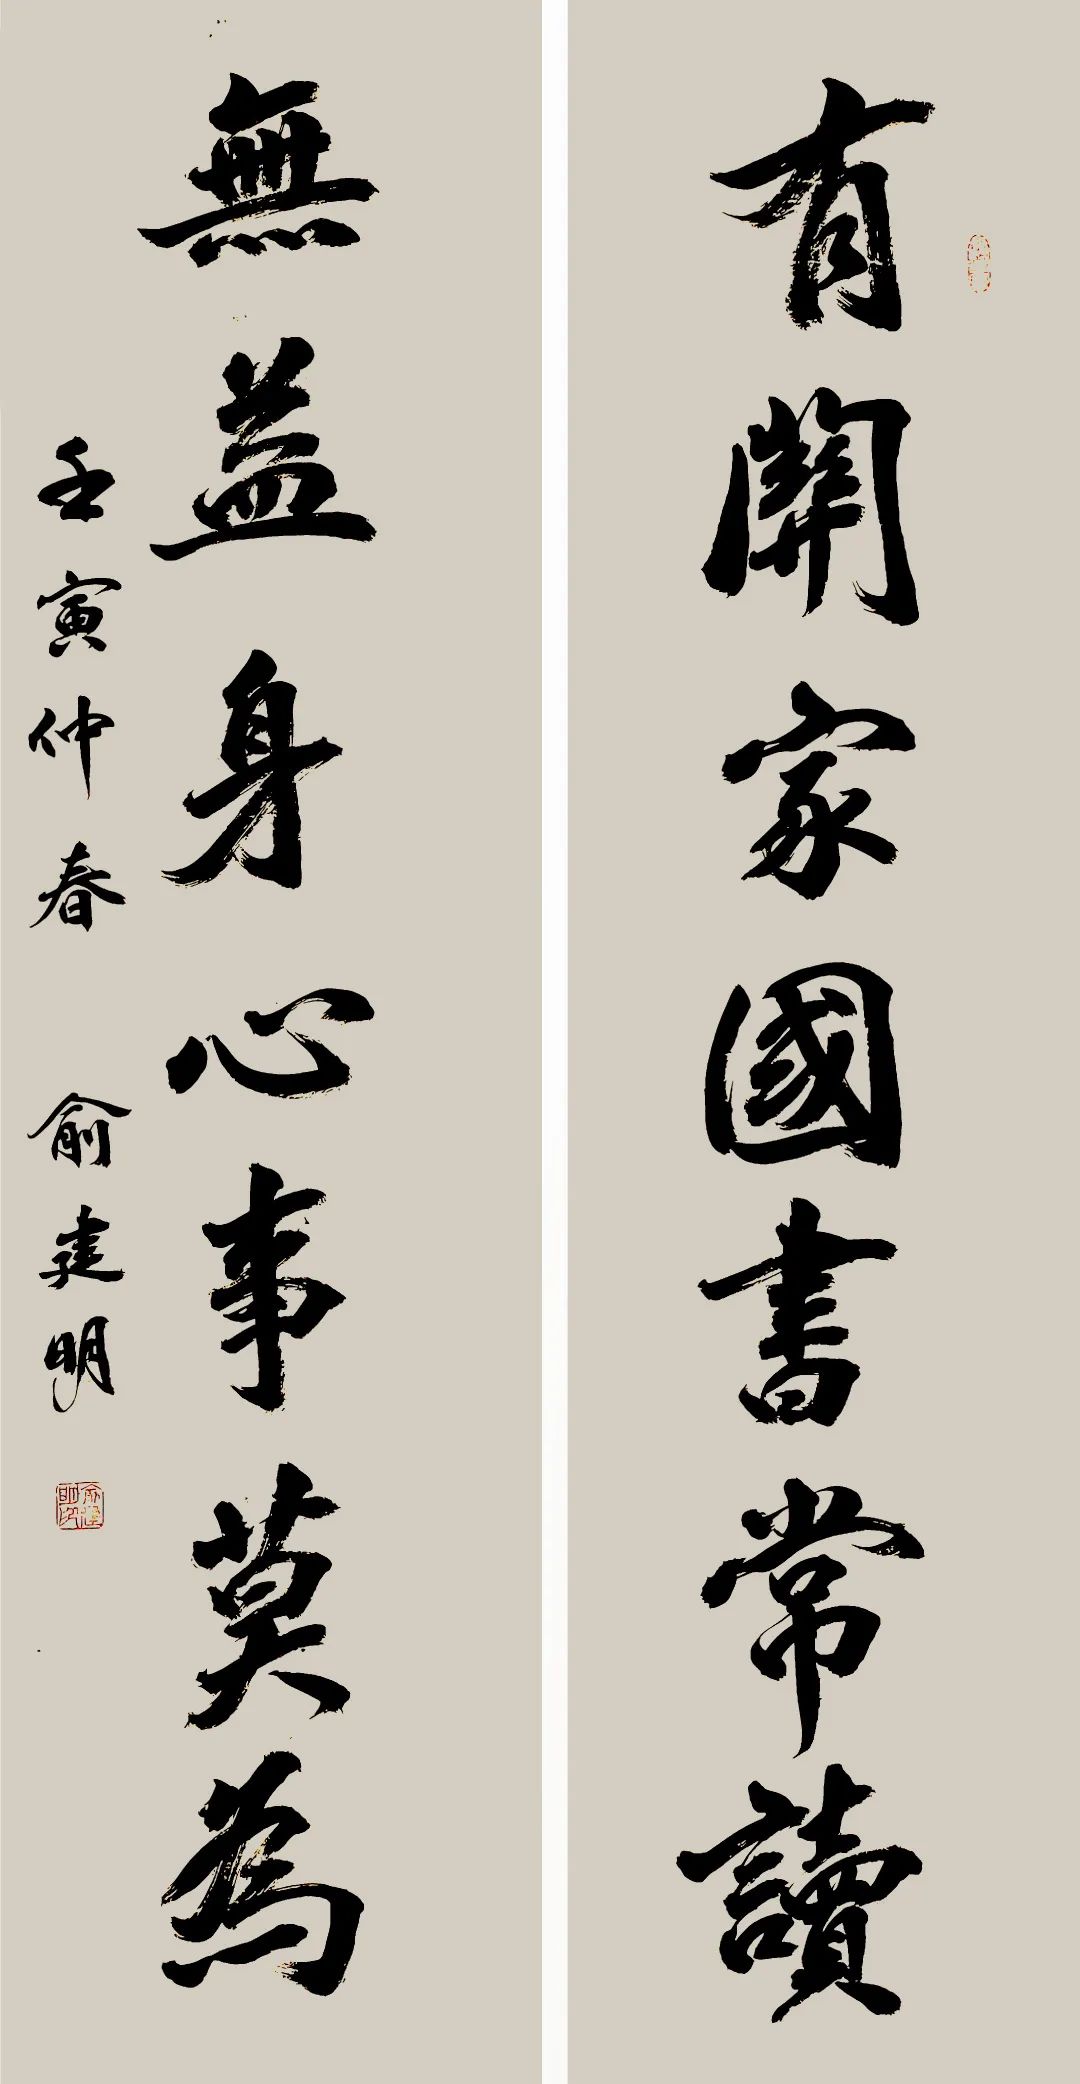 有關家國書常讀
無益身心事莫為
壬寅仲春 俞建明
俞建明印